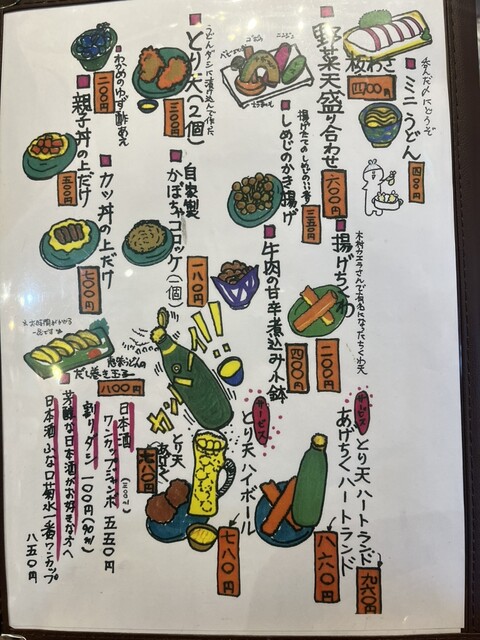 板わさ
四〇〇円
呑んだ〆にどうぞ
ミニうどん
四〇〇円
野菜天盛り合わせ
六〇〇円
ニンジン
揚げたてのしめじのいい香
しめじのかき揚げ
三五〇円
木村カエラさんで有名になったちくわ天
揚げちくわ
二〇〇円
牛肉の甘辛煮込み小鉢
四〇〇円
うどんダシに漬け込んで作った
とり天(2個)
三〇〇円
自家製
かぼちゃコロッケ(一個)
一八〇円
わかめのゆず酢あえ
二〇〇円
親子丼の上だけ
五〇〇円
カツ丼の上だけ
七〇〇円
だし巻き玉子
八〇〇円
サービス
とり天ハートランド
九六〇円
あげちくハートランド
八六〇円
サービス
とり天ハイボール
七八〇円
とり天
あげちく
七八〇円
ガツン
日本酒
ワンカップジャンボ 五五〇円
割りダシ 100円
芳醇な日本酒がお好きな方へ
日本酒ふなロ菊水一番ワンカップ
八五〇円